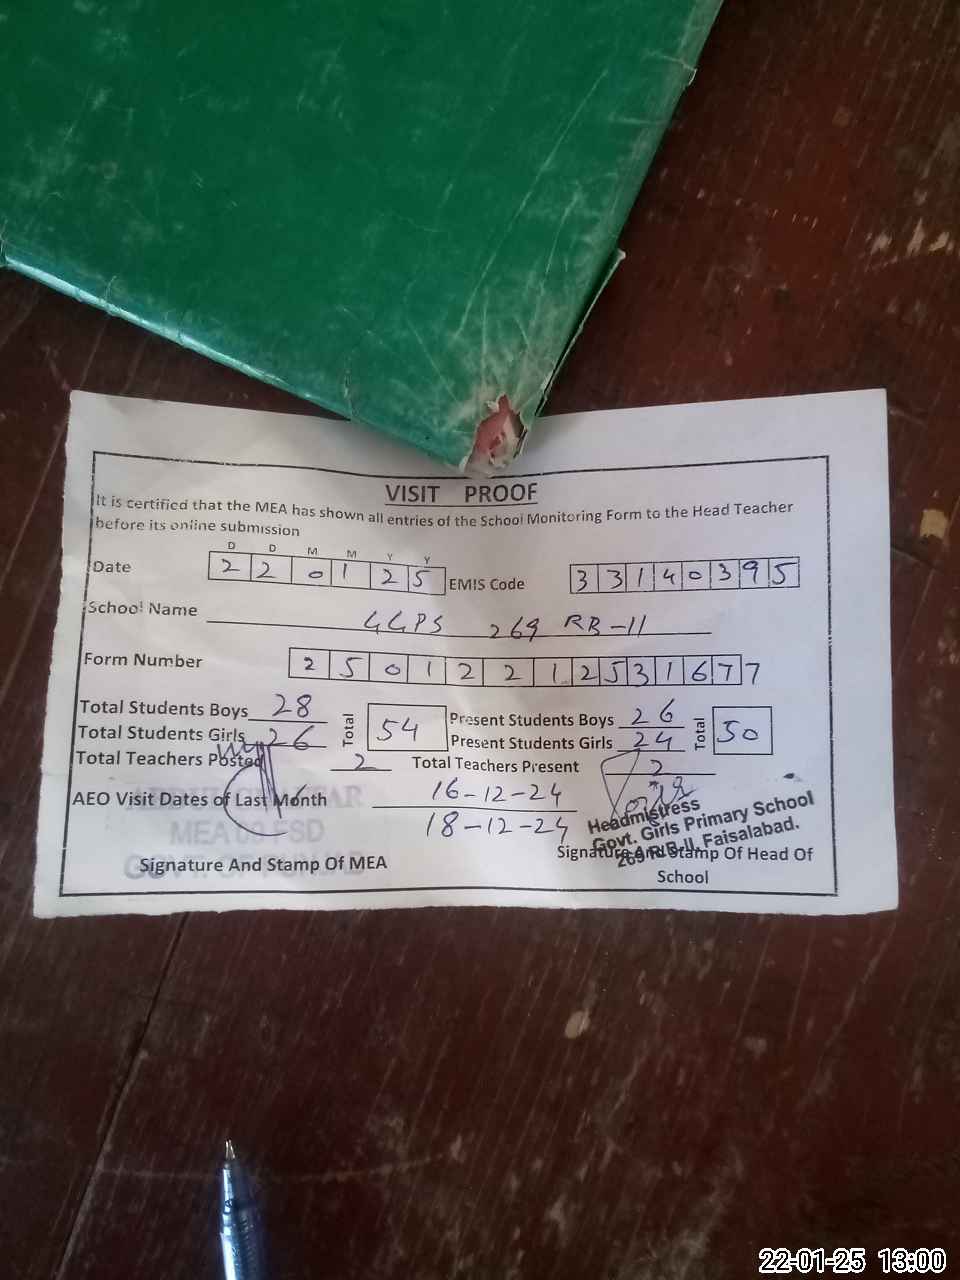 VISIT PROOF
It is certified that the MEA has shown all entries of the School Monitoring Form to the Head Teacher
before its online submission
D D M M Y Y
Date 2 2 0 1 2 5 EMIS Code 3 3 1 4 0 3 9 5
School Name GGPS 269 RB-II
Form Number 2 5 0 1 2 2 1 2 5 3 1 6 7 7
Total Students Boys 28 Total 54 Present Students Boys 26 Total 50
Total Students Girls 26 Present Students Girls 24
Total Teachers Posted 2 Total Teachers Present 2
AEO Visit Dates of Last Month 16-12-24
18-12-24
MEA FSD
Headmistress
Govt. Girls Primary School
269 R.B-II, Faisalabad.
Signature And Stamp Of MEA
Signature And Stamp Of Head Of
School
22-01-25 13:00